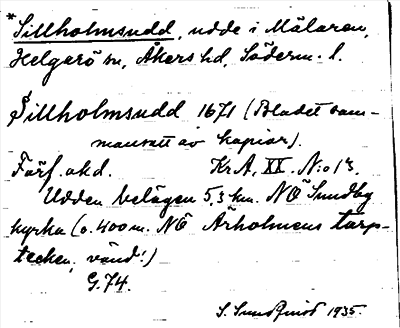 *Sillholmsudd, udde i Mälaren,
Helgarö sn, Åkers hd, Söderm. l.
Sillholmsudd 1671 (Bladet sam-
mansatt av kopior).
Förf. okd. Kr.A, XX. N:o 13.
Udden belägen 5,3 km. NÖ Sundby
kyrka (c. 400 m. NÖ Årholmens torp-
tecken, vänd!)
G.74.
S. Sundqvist 1935.